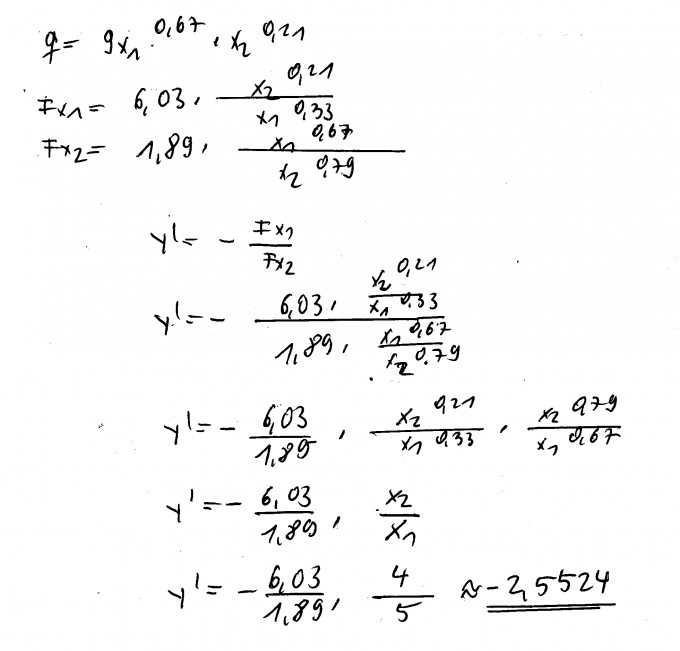 q = 9x₁^0,67 · x₂^0,21
Fx₁ = 6,03 · x₂^0,21 / x₁^0,33
Fx₂ = 1,89 · x₁^0,67 / x₂^0,79
y' = - Fx₁ / Fx₂
y' = - (6,03 · x₂^0,21 / x₁^0,33) / (1,89 · x₁^0,67 / x₂^0.79)
y' = - 6,03 / 1,89 · x₂^0,21 / x₁^0,33 · x₂^0,79 / x₁^0,67
y' = - 6,03 / 1,89 · x₂ / x₁
y' = - 6,03 / 1,89 · 4 / 5 ≈ -2,5524